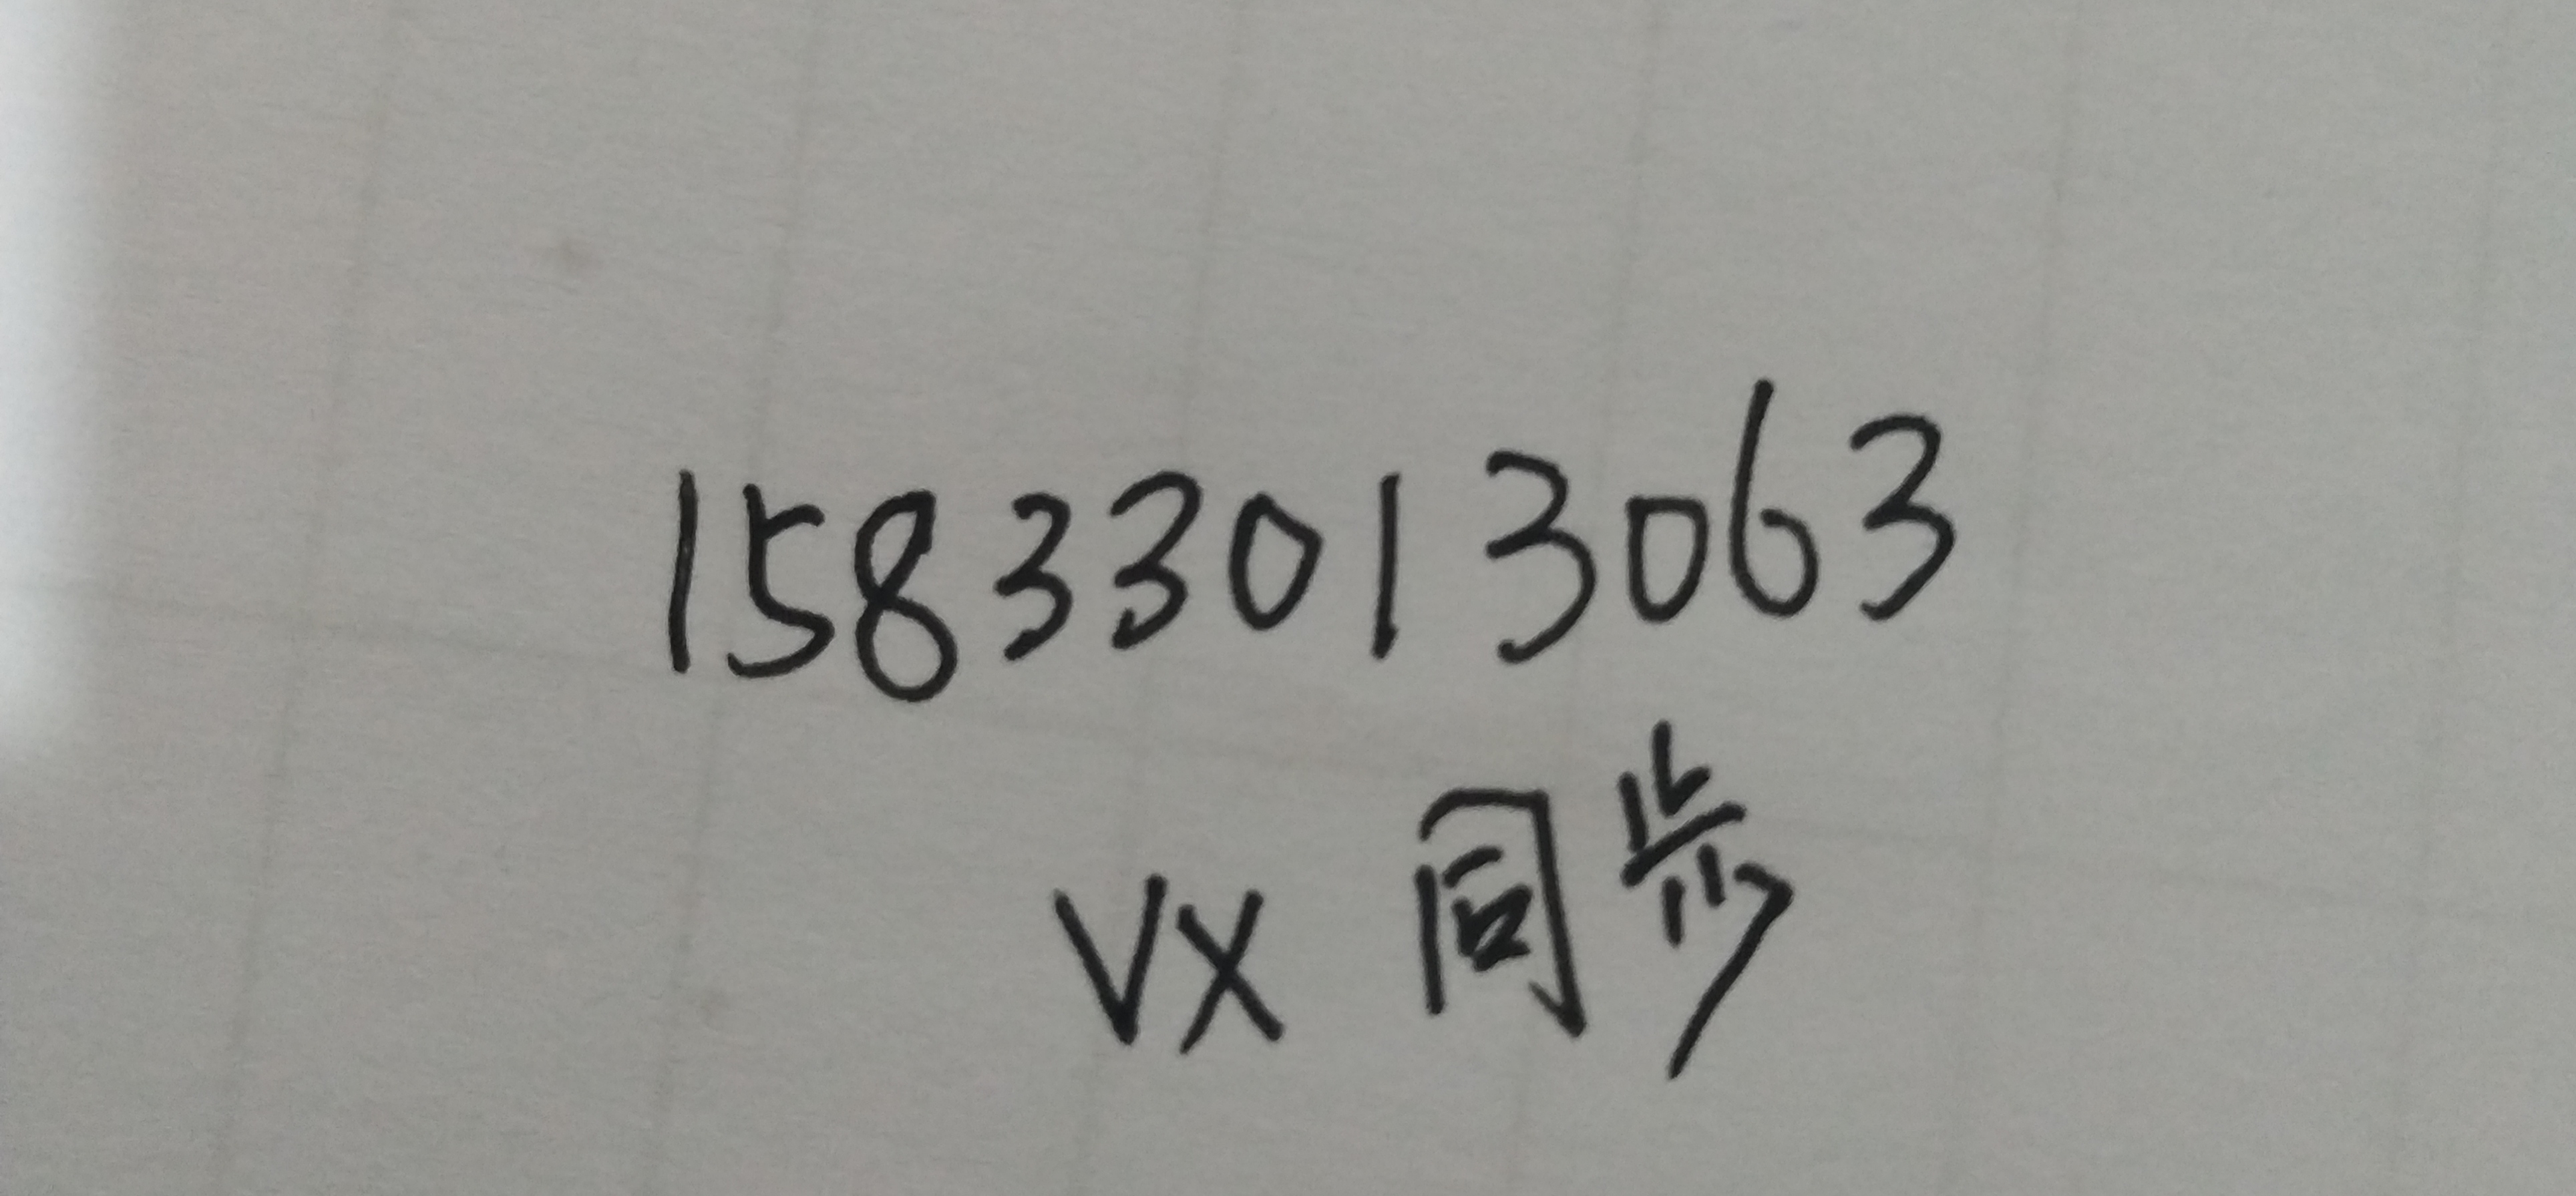 15833013063
VX 同步